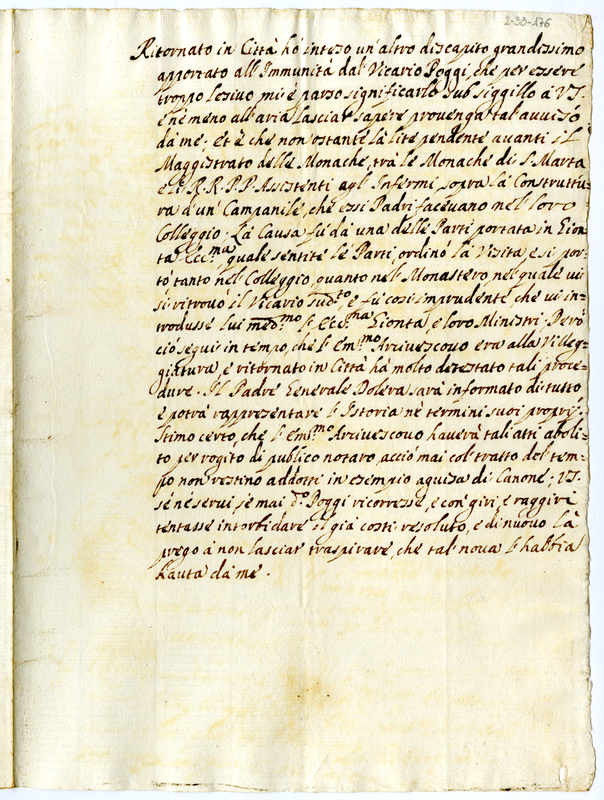 2-33-176
Ritornato in Città hò inteso un'altro discapito grandissimo
apportato all'Immunità dal Vicario Poggi, che per essere
troppo lesivo mi è parso significarlo sub siggillo à V.S.
e nè meno all'aria lasciar sapere provenga tal avviso
da me; et è che non ostante la lite pendente avanti il
Maggistrato delle Monache, trà le Monache di S. Marta
e li R.R. P.P. Assistenti agl'Infermi, sopra la Construttu-
ra d'un Campanile, che essi Padri facevano nel loro
Collegio; La Causa fù da una delle Parti portata in Gion-
ta Ecc.ma quale sentite le Parti, ordinò la Visita, e si por-
tò tanto nel Collegio, quanto nel Monastero, nel quale vi
si ritrovò il Vicario sud.to, e fù così imprudente che vi in-
trodusse lui med.mo l'Ecc.ma Gionta, e loro Ministri; Però
ciò seguì in tempo, che l'Em.mo Arcivescovo era alla Villeg-
giatura, e ritornato in Città hà molto detestato tali proce-
dure. Il Padre Generale Dolera sarà informato di tutto
e potrà rappresentare l'Istoria nè termini suoi proprj.
Stimo certo, che l'Em.mo Arcivescovo haverà tali atti aboli-
to per rogito di publico notaro, acciò mai col tratto del tem-
po non restino addotti in esempio à guisa di Canone; V.S.
sè nè servi, se mai d.o Poggi ricorresse, e con giri, e raggiri
tentasse intorbidare il già costì resoluto, e di nuovo la
prego à non lasciar traspirare, che tal nova l'habbia
hauta da me.